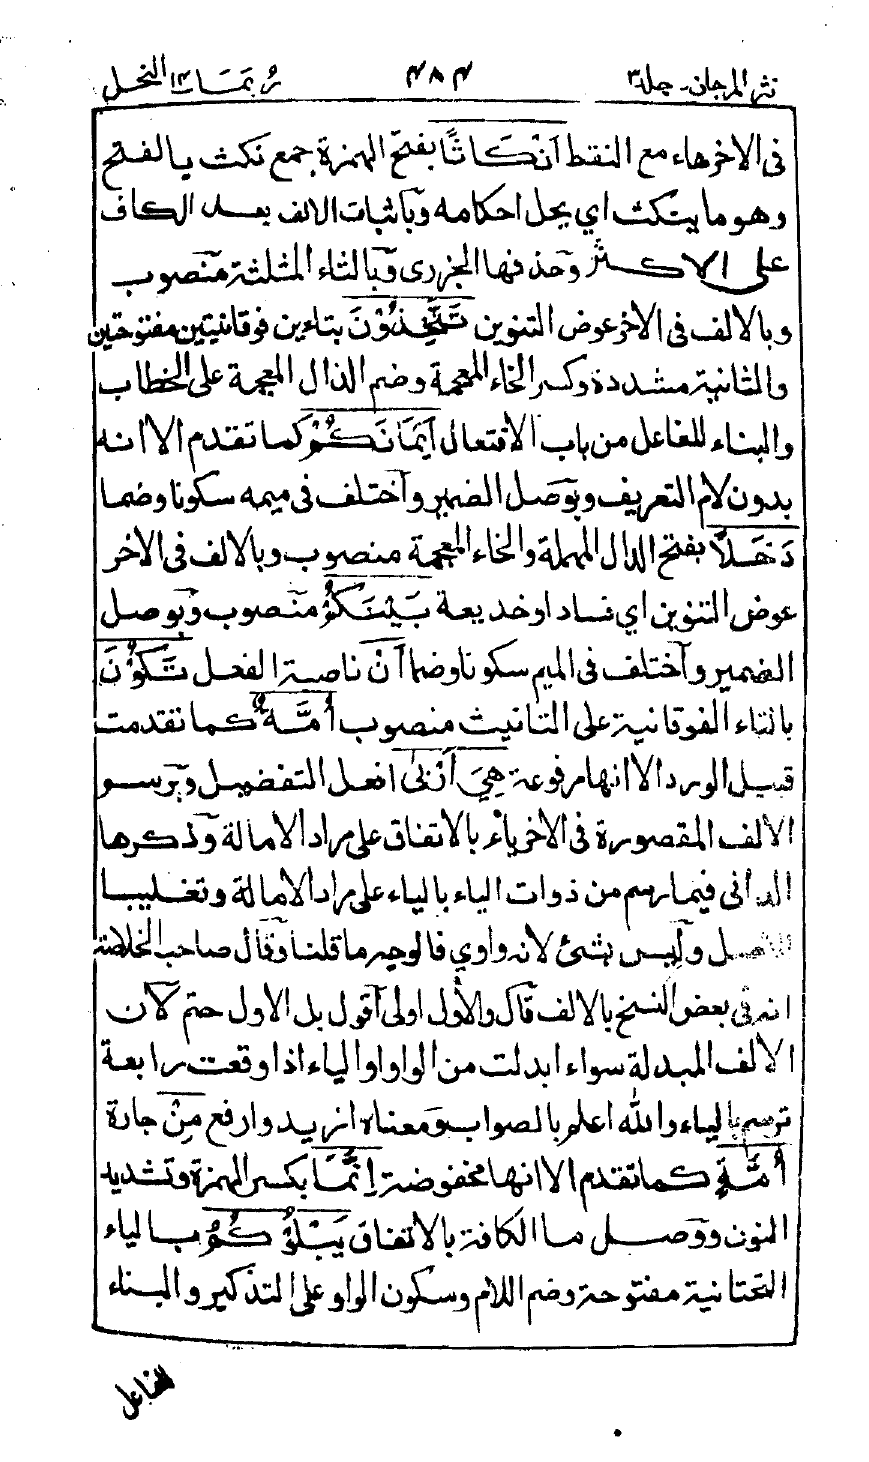 نثر المرجان - جلد ٣
٤٨٤
ربما ١٤ النحل
فى الاخرهاء مع النقط اَنْكَاثًا بفتح الهمزة جمع نكث بالفتح
وهو ما ينكث اي يحل احكامه وبآثبات الالف بعد الكاف
على الاكثر وحذفها الجزرى وبالثاء المثلثة منصوب
وبالالف فى الاخرعوض التنوين تَتَّخِذُوْنَ بتاءين فوقانيتين مفتوحتين
والثانية مشددة وكسر الخاء المعجمة وضم الذال المعجمة على الخطاب
والبناء للفاعل من باب الافتعال اَيْمَانَكُمْ كما تقدم الا انه
بدون لام التعريف وبوصل الضمير واختلف فى ميمه سكونا وضما
دَخَلًا بفتح الدال المهملة والخاء المعجمة منصوب وبالالف فى الاخر
عوض التنوين اي فساد او خديعة بَيْنَكُمْ منصوب وبوصل
الضمير واختلف فى الميم سكونا وضما اَنْ ناصبة الفعل تَكُوْنَ
بالتاء الفوقانية على التانيث منصوب اُمَّةٌ كما تقدمت
قبيل الورد الا انها مرفوعة هِيَ اَرْبٰى افعل التفضيل وبرسم
الالف المقصورة فى الاخر ياء بالاتفاق على مراد الامالة وذكرها
الدانى فيما رسم من ذوات الياء بالياء على مراد الامالة وتغليبا
للاصل وليس بشئ لانه واوي فالوجه ما قلنا وقال صاحب الخلاصة
انه فى بعض النسخ بالالف قال والاول اولى اقول بل الاول حتم لان
الالف المبدلة سواء ابدلت من الواو او الياء اذا وقعت رابعة
ترسم بالياء والله اعلم بالصواب ومعناه ازيد وارفع مِنْ جارة
اُمَّةٍ كما تقدم الا انها مخفوضة اِنَّمَا بكسر الهمزة وتشديد
النون ووصل ما الكافة بالاتفاق يَبْلُوْكُمُ بالياء
التحتانية مفتوحة وضم اللام وسكون الواو على التذكير والبناء
للفاعل